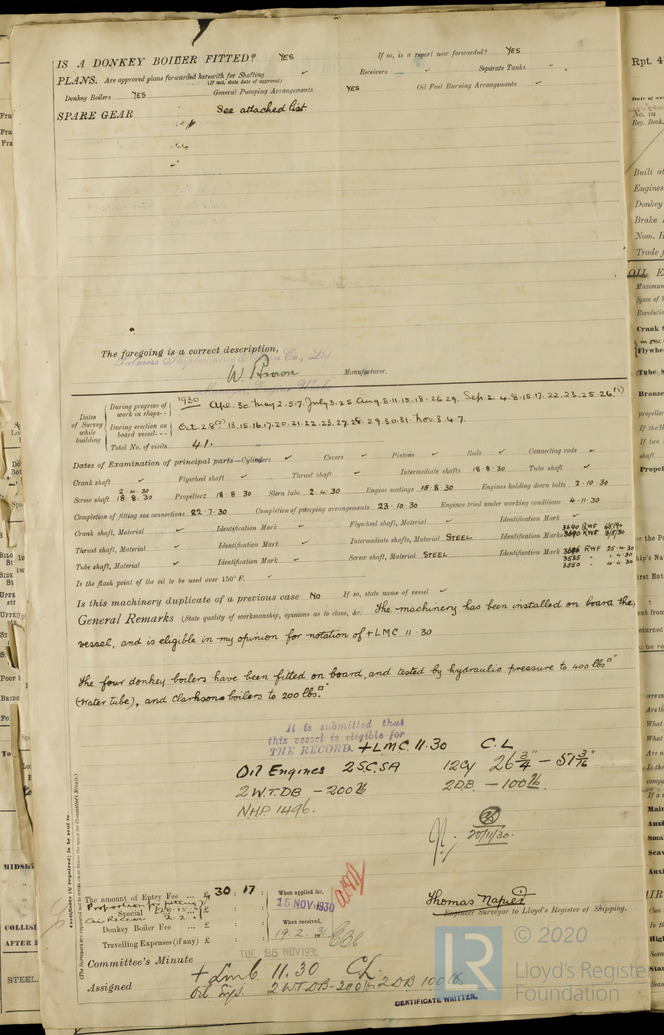 IS A DONKEY BOILER FITTED? YES If so, is a report now forwarded? YES
PLANS. Are approved plans forwarded herewith for Shafting ✓ Receivers ✓ Separate Tanks ✓
(If not, state date of approval)
Donkey Boilers YES General Pumping Arrangements YES Oil Fuel Burning Arrangements ✓
SPARE GEAR See attached list.
The foregoing is a correct description,
W. Brown Manufacturer.
Dates of Survey while building
During progress of work in shops-- 1930 Apr. 30. May 2.5.7. July 3.25 Aug. 8.11.15.18.26.29. Sep. 2.4.8.15.17.22.23.25.26
During erection on board vessel--- Oct. 2.8. 13.15.16.17.20.21.22.23.27.28.29.30.31 Nov. 3.4.7.
Total No. of visits 41.
Dates of Examination of principal parts—Cylinders ✓ Covers ✓ Pistons ✓ Rods ✓ Connecting rods ✓
Crank shaft ✓ Flywheel shaft ✓ Thrust shaft ✓ Intermediate shafts 18.8.30 Tube shaft ✓
Screw shaft 2.4.30 18.8.30 Propeller 18.8.30 Stern tube 2.4.30 Engine seatings 15.8.30 Engines holding down bolts 2.10.30
Completion of fitting sea connections 22.7.30 Completion of pumping arrangements 23.10.30 Engines tried under working conditions 4.11.30
Crank shaft, Material ✓ Identification Mark ✓ Flywheel shaft, Material ✓ Identification Mark ✓
Thrust shaft, Material ✓ Identification Mark ✓ Intermediate shafts, Material STEEL Identification Marks 3690 RWF
Tube shaft, Material ✓ Identification Mark ✓ Screw shaft, Material STEEL Identification Mark 3696 RWF 25.4.30
3535 " 1.4.30
3550 " 4.4.30
Is the flash point of the oil to be used over 150° F. ✓
Is this machinery duplicate of a previous case No If so, state name of vessel ✓
General Remarks (State quality of workmanship, opinions as to class, &c. The machinery has been installed on board the
vessel, and is eligible in my opinion for notation of +LMC 11.30
The four donkey boilers have been fitted on board, and tested by hydraulic pressure to 400 lbs□"
(Water tube), and Clarksons boilers to 200 lbs.□"
It is submitted that
this vessel is eligible for
THE RECORD. +LMC. 11.30 C.L
Oil Engines 2SCSA 12Cy 26 3/4" – 51 3/16"
2 W.T.DB – 200 lb 2DB. – 100 lb.
NHP 1496.
20/11/30.
(The Surveyors are requested not to write on or below the space for Committee's Minute.)
The amount of Entry Fee ... £ 30 : 17 : When applied for,
Special ... £ 15 NOV 1930
Donkey Boiler Fee ... £ When received,
Travelling Expenses (if any) £ 19.2.31
Thomas Napier
Engineer Surveyor to Lloyd's Register of Shipping.
Committee's Minute TUE 25 NOV 1930
Assigned + Lmc 11.30 CL
Oil Engs. 2WTDB-200lb. 2DB 100 lb.
CERTIFICATE WRITTEN.
LR
© 2020
Lloyd's Register
Foundation
Rpt. 4